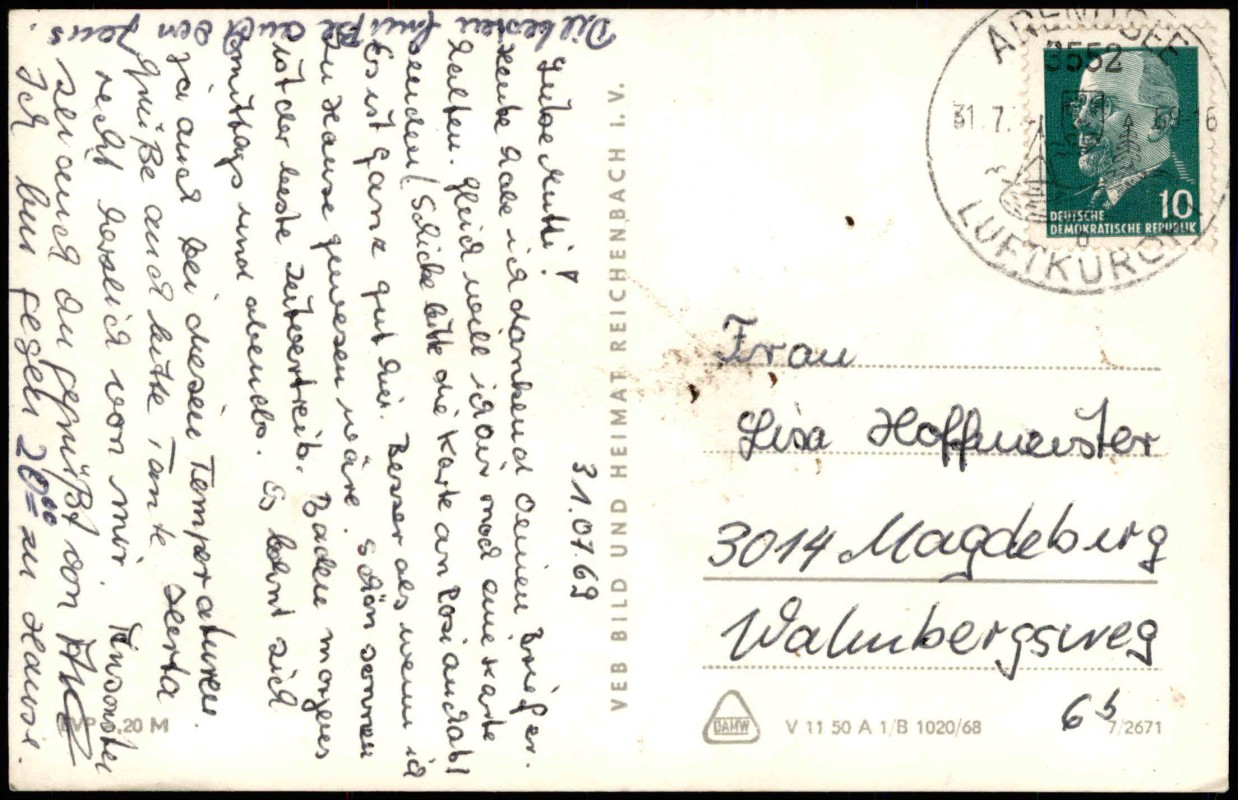 31.07.69
Liebe Mutti!
Heute habe ich dankend deinen Brief er-
halten. Gleich will ich dir noch eine Karte
senden! Schicke bitte die Karte an Rosi auch ab!
Es ist ganz gut hier. Besser als wenn ich
zu Hause gewesen wäre. Schön sonnen
ist der beste Zeitvertreib. Baden morgens
mittags und abends. Es lohnt sich
ja auch bei diesen Temperaturen.
Grüße auch bitte Tante Herta
recht herzlich von mir.
sei auch du gegrüßt von
Ich bin gegen 20⁰⁰ zu Hause.
Die besten Grüße auch an Jens.
EVP 0,20 M
VEB BILD UND HEIMAT REICHENBACH I. V.
ARENDSEE
3552
31. 7. 69-16
LUFTKURORT
b
10
DEUTSCHE
DEMOKRATISCHE REPUBLIK
Frau
Lisa Hoffmeister
3014 Magdeburg
Walmbergsweg
6b
DAMW
V 11 50 A 1/B 1020/68
7/2671